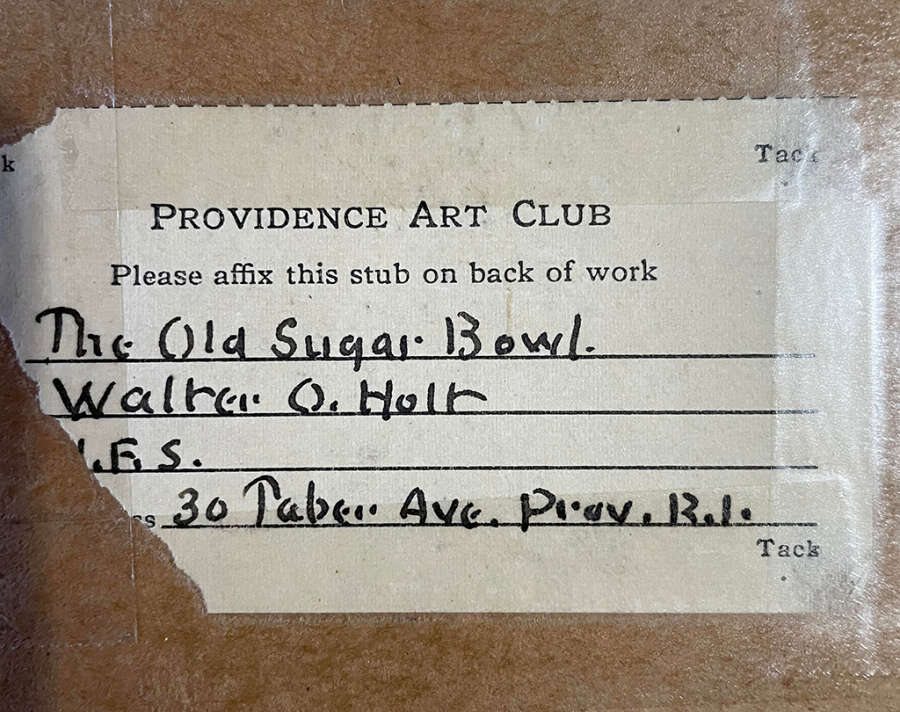 k Tack
PROVIDENCE ART CLUB
Please affix this stub on back of work
The Old Sugar Bowl.
Walter O. Holt
.F.S.
ss 30 Taber Ave. Prov. R.I.
Tack